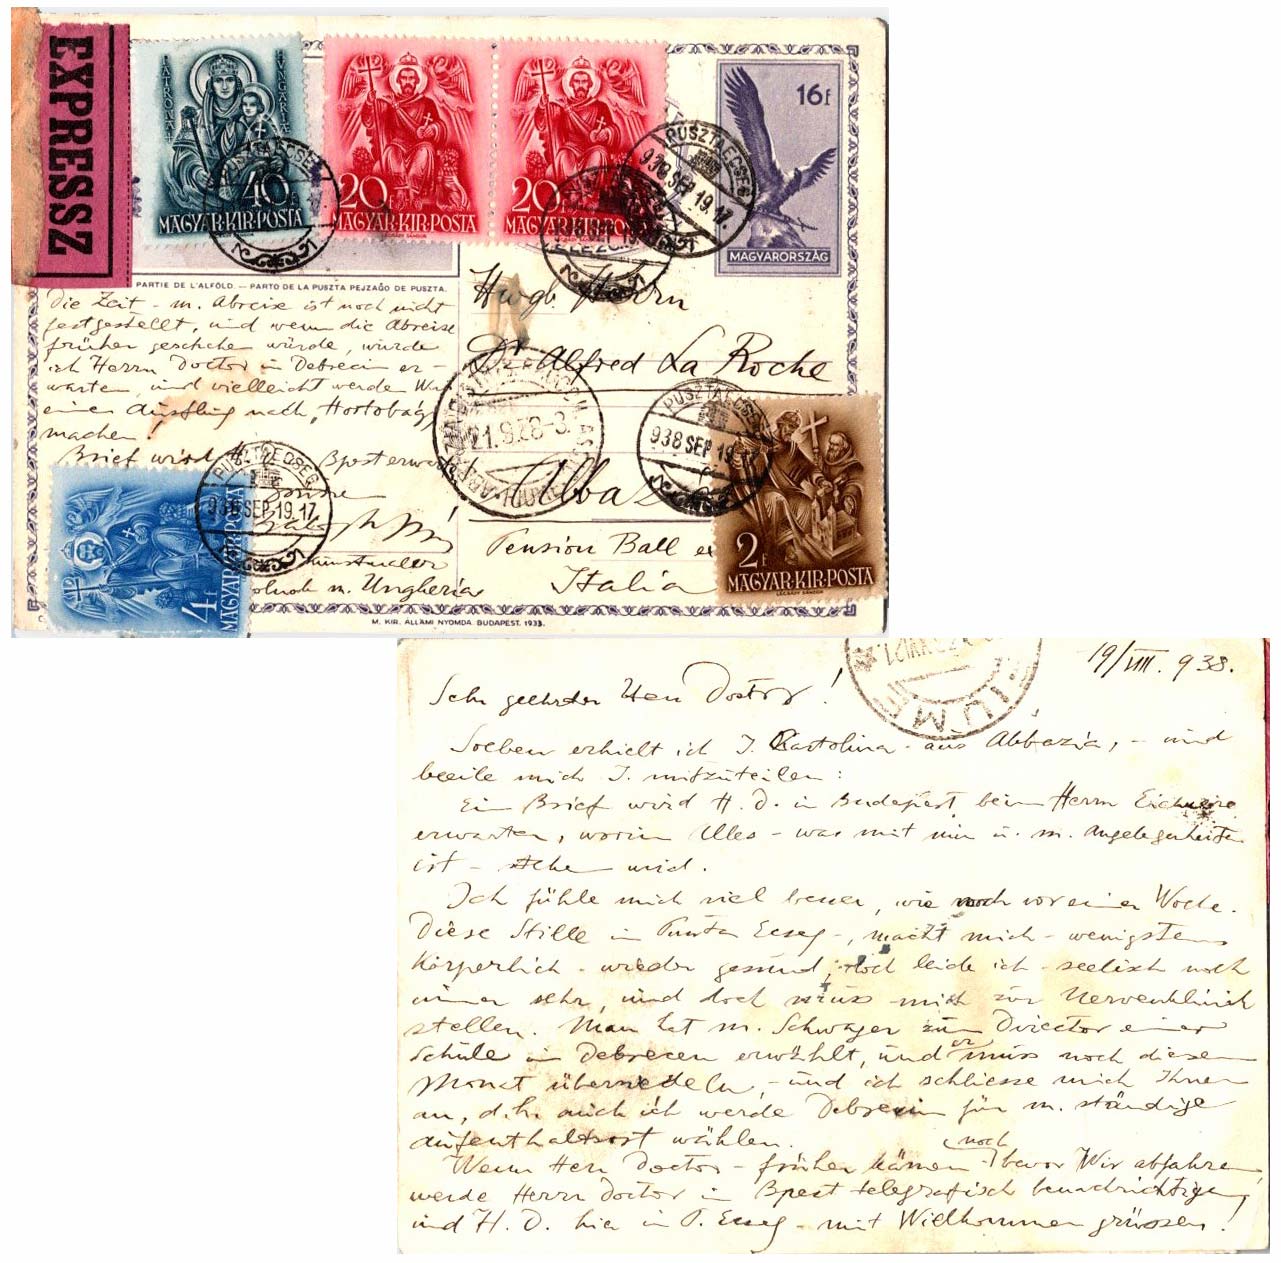 EXPRESSZ
PATRONA
HUNGARIAE
40
MAGYAR·KIR·POSTA
LÉGRÁDY SÁNDOR
20
MAGYAR·KIR·POSTA
LÉGRÁDY SÁNDOR
20
MAGYAR·KIR·POSTA
16f
MAGYARORSZÁG
PUSZTAECSEG
938 SEP 19.17.
PUSZTAECSEG
938 SEP 19
PARTIE DE L'ALFÖLD. — PARTO DE LA PUSZTA PEJZAĜO DE PUSZTA.
Die Zeit - m. Abreise ist noch nicht
festgestellt, und wenn die Abreise
früher geschehe würde, würde
ich Herrn Doctor in Debrecin er-
warten, und vielleicht werden Wir
einen Ausflug nach Hortobágy
machen!
Brief wird H. Bpest erwar
m. Ungheria
Hwgb. Herrn
Dr Alfred La Roche
Abbaz
Pension Ball
Italia
21.9.28-3.
PUSZTAECSEG
938 SEP 19.17.
PUSZTAECSEG
938 SEP 19
4f
MAGYAR·KIR·POSTA
2f
MAGYAR·KIR·POSTA
LÉGRÁDY SÁNDOR
M. KIR. ÁLLAMI NYOMDA. BUDAPEST. 1933.
FIUME
19/VIII. 938.
Sehr geehrter Herr Doctor!
Soeben erhielt ich I. Cartolina - aus Abbazia, - und
beeile mich I. mitzuteilen:
Ein Brief wird H. D. in Budapest beim Herrn
erwarten, worin Alles - was mit mir u. m. Angelegenheiten
ist - stehen wird.
Ich fühle mich viel besser, wie noch vor einer Woche.
Diese Stille in Puszta Ecseg -, macht mich - wenigstens
körperlich - wieder gesund, doch leide ich - seelisch noch
immer sehr, und doch muss - mich zur Nervenklinik
stellen. Man hat m. Schwager zum Director einer
Schule in Debrecen erwählt, und er muss noch diesen
Monat übersiedeln, - und ich schliesse mich Ihnen
an, d.h. auch ich werde Debrecin für m. ständige
Aufenthaltsort wählen.
Wenn Herr Doctor - früher kämen - noch bevor Wir abfahren
werde Herrn Doctor in Bpest telegrafisch benachrichtigen,
und H. D. hier in P. Ecseg - mit Willkommen grüssen!